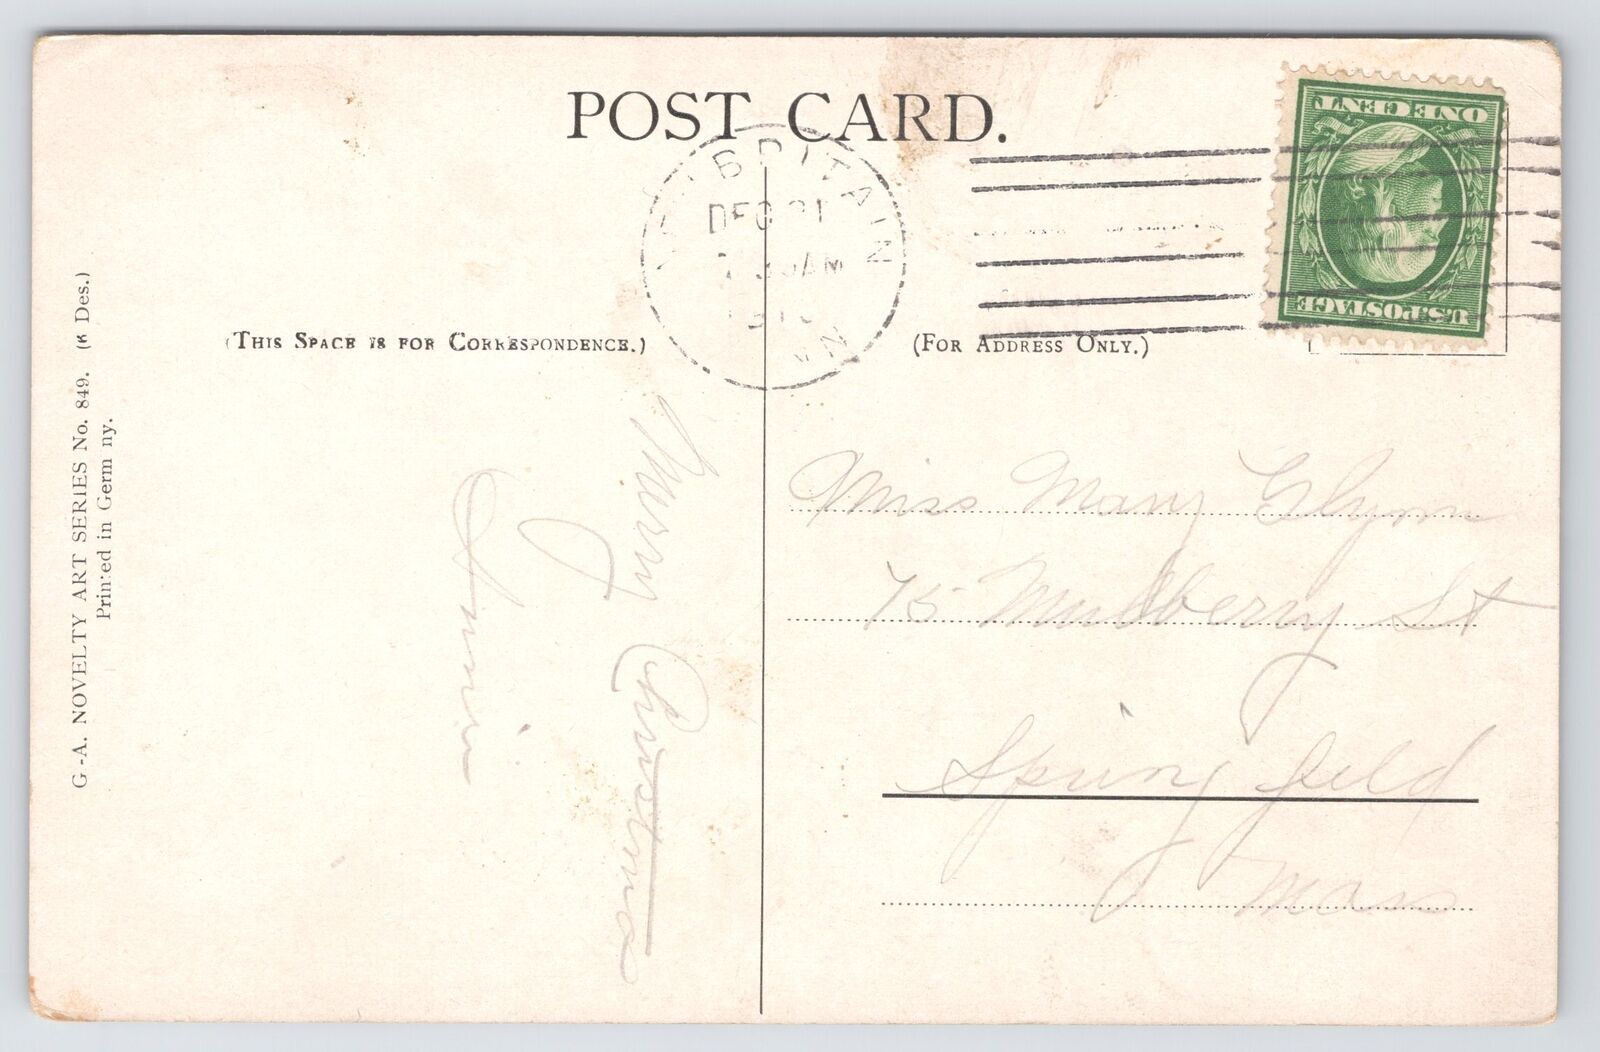 POST CARD.
BRITAIN
DEC 21
AM
(THIS SPACE IS FOR CORRESPONDENCE.)
(FOR ADDRESS ONLY.)
ONE CENT
U.S. POSTAGE
G-A. NOVELTY ART SERIES No. 849. (6 Des.)
Printed in Germ ny.
Merry Christmas
Miss Mary Glynn
75 Mulberry St
Springfield
Mass